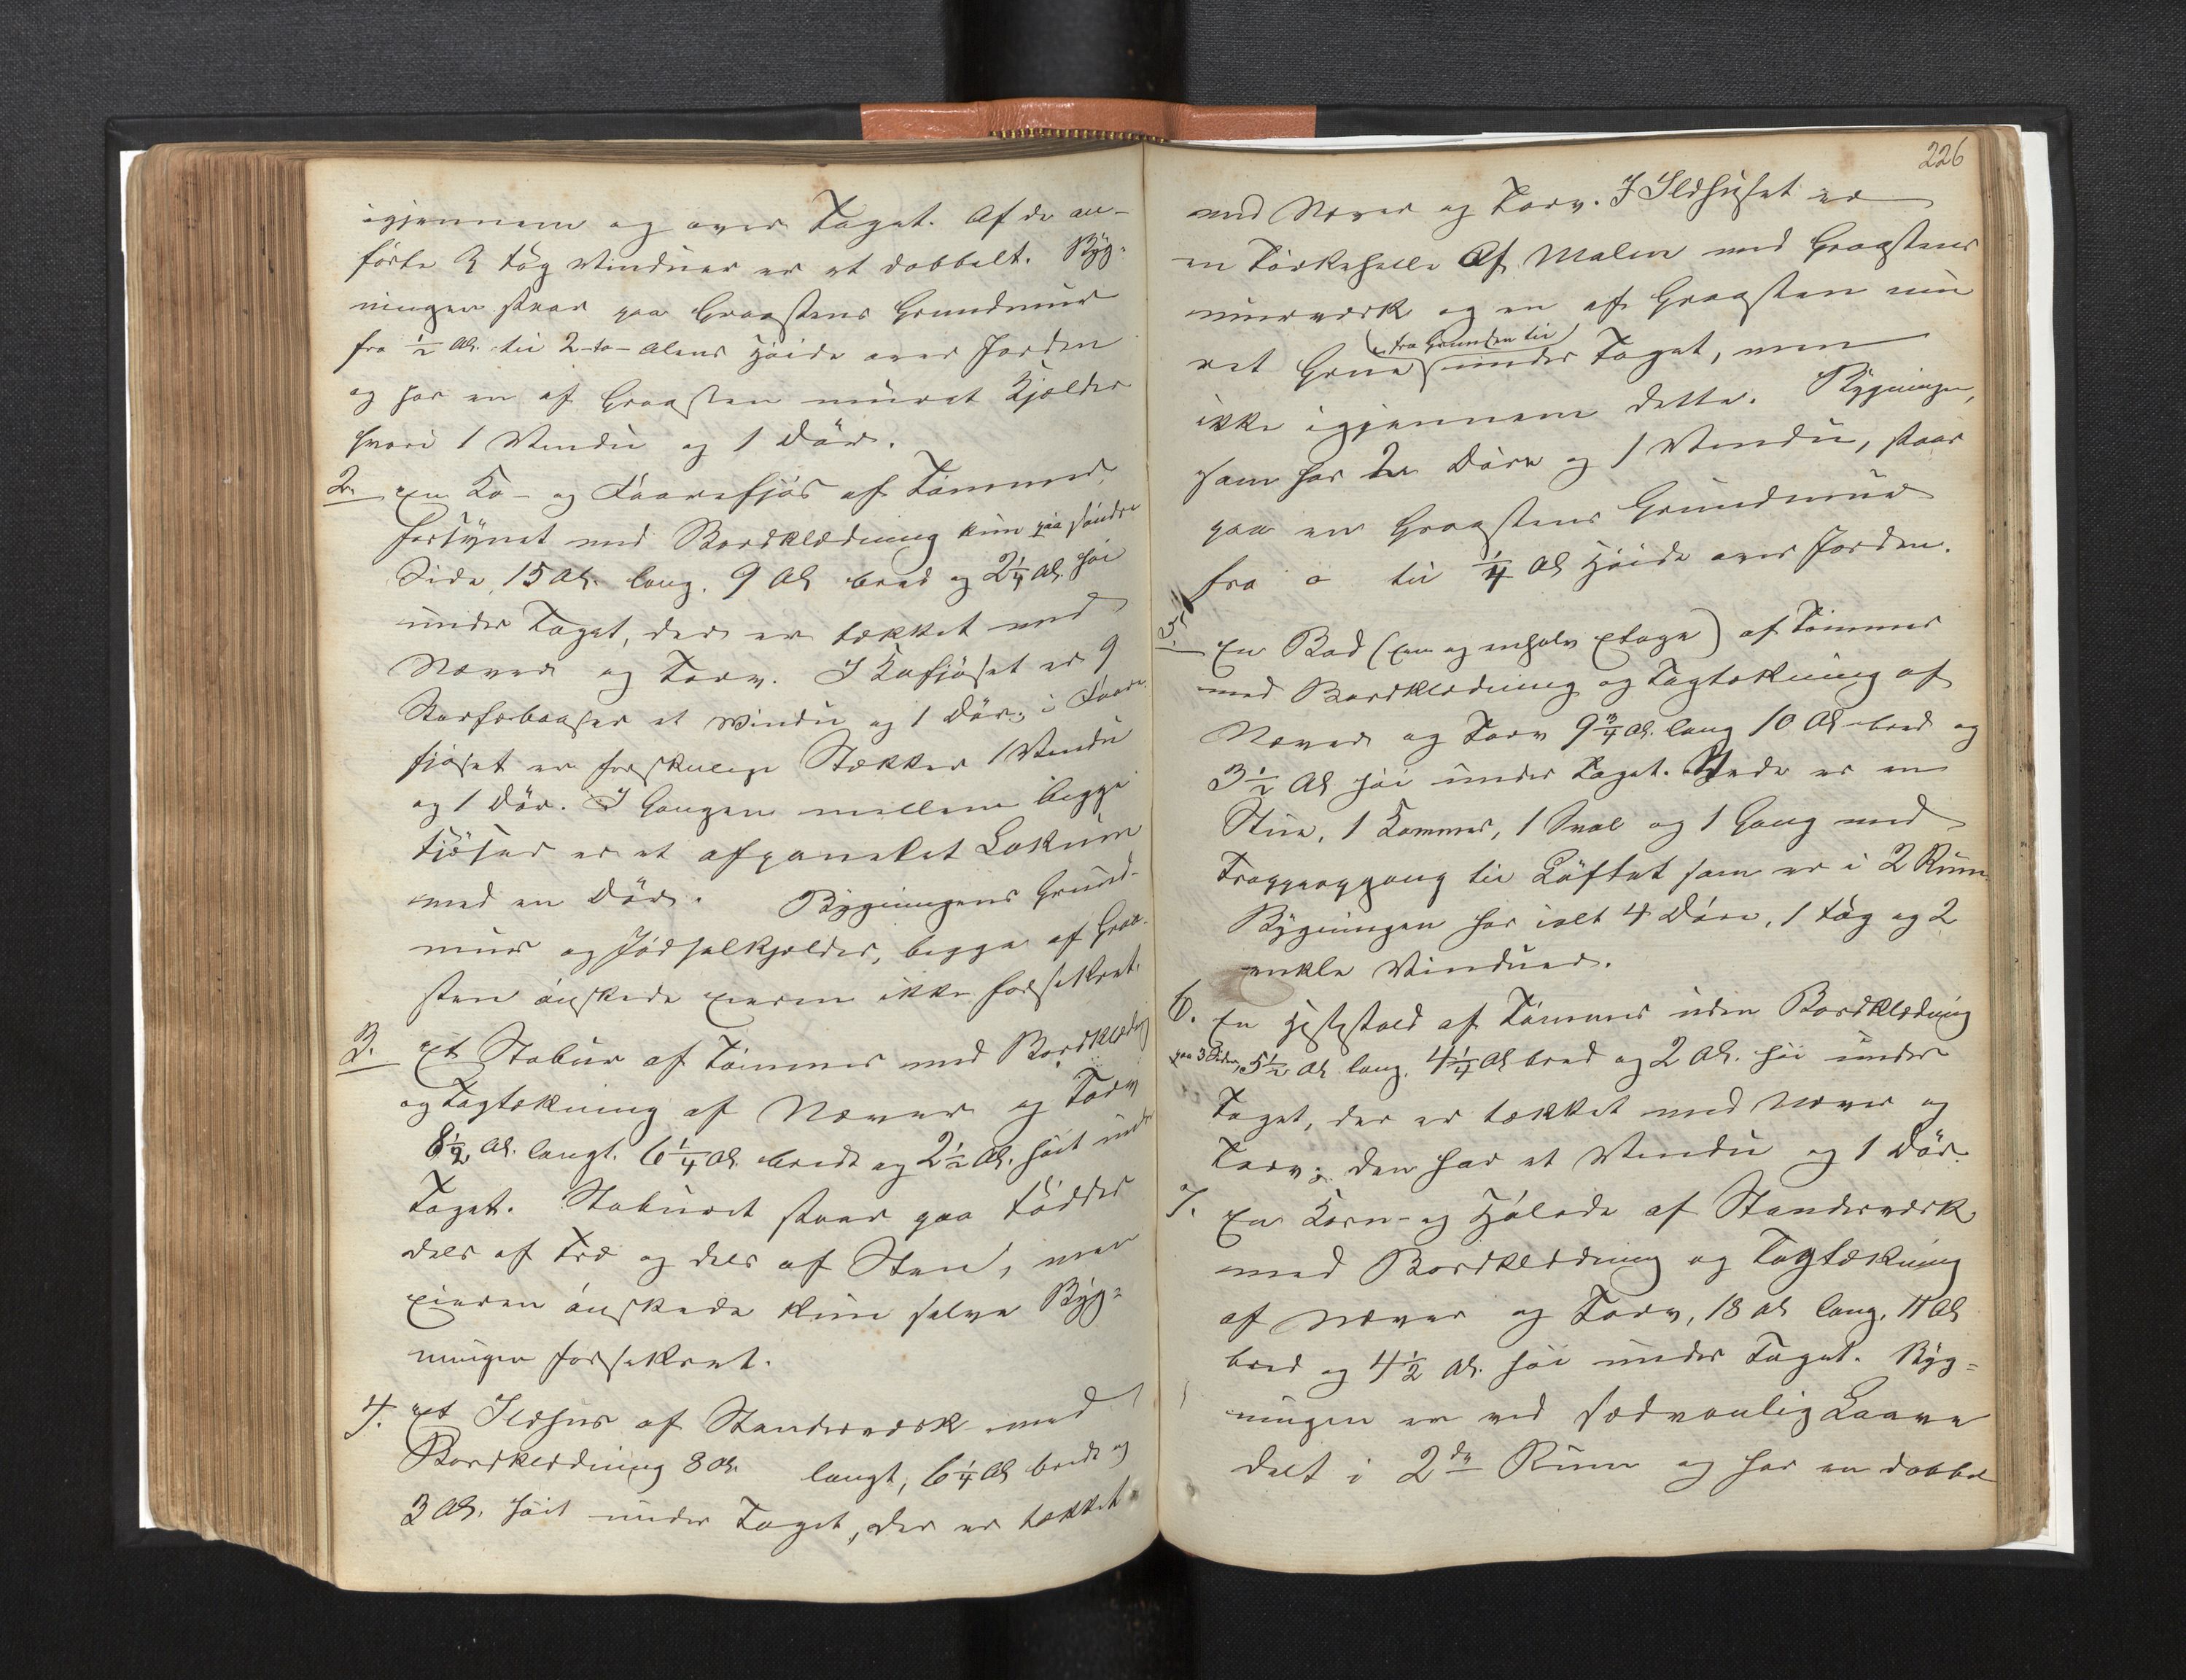 igjennem og over Taget. Af de an-
førte 3 Fag Vinduer er et dobbelt. Byg-
ningen staar paa Graastens Grundmur
fra ½ Al. til 2 to Alens Høide over Jorden
og har en af Graasten muret Kjelder
hvori 1 Vindu og 1 Dør.
2. En Ko- og Faarefjøs af Tømmer,
forsynet med Bordklædning kun paa søndre
Side, 15 Al. lang, 9 Al. bred og 2¼ Al. høi
under Taget, der er tækket med
Næver og Torv. I Kofjøset er 9
Storfæbaaser et Vindu og 1 Dør; i Faare-
fjøset er forskjellige Stækker 1 Vindu
og 1 Dør. I Gangen mellem begge
Fjøser er et afpanelet Lokum
med en Dør. Bygningens Grund-
mur og Gjødselkjelder, begge af Graa-
sten ønskede Eieren ikke forsikret.
3. Et Stabur af Tømmer med Bordklædng
og Tagtækning af Næver og Torv
8½ Al. langt, 6¼ Al. bredt og 2½ Al. høit under
Taget. Staburet staar paa Fødder
dels af Træ og dels af Sten, men
Eieren ønskede kun selve Byg-
ningen forsikret.
4. Et Ildhus af Standerværk med
Bordklædning 8 Al. langt, 6¼ Al. bredt og
3 Al. høit under Taget, der er tækket
226
med Næver og Torv. I Ildhuset er
en Tørkehelle af Malm med Graastens
murværk og en af Graasten mu
ret Grue (fra Grunden til) under Taget, men
ikke igjennem dette. Bygningen,
som har 2 Døre og 1 Vindu, staar
paa en Graastens Grundmur
fra 0 til ¼ Al. Høide over Jorden.
5. En Bod (Een og enhalv Etage) af Tømmer
med Bordklædning og Tagtækning af
Næver og Torv 9¾ Al. lang 10 Al. bred og
3½ Al. høi under Taget. Nede er en
Stue, 1 Kammer, 1 Sval og 1 Gang med
Trappeopgang til Loftet som er i 2 Rum.
Bygningen har ialt 4 Døre, 1 Fag og 2
enkle Vinduer.
6. En Hestestald af Tømmer uden Bordklædning
paa 3 Sider, 5½ Al. lang, 4¼ Al. bred og 2 Al. høi under
Taget, der er tækket med Næver og
Torv; den har et Vindu og 1 Dør.
7. En Korn- og Hølade af Standerværk
med Bordklædning og Tagtækning
af Næver og Torv, 18 Al. lang, 11 Al.
bred og 4½ Al. høi under Taget. Byg-
ningen er ved sædvanlig Laave
delt i 2de Rum og har en dobbel